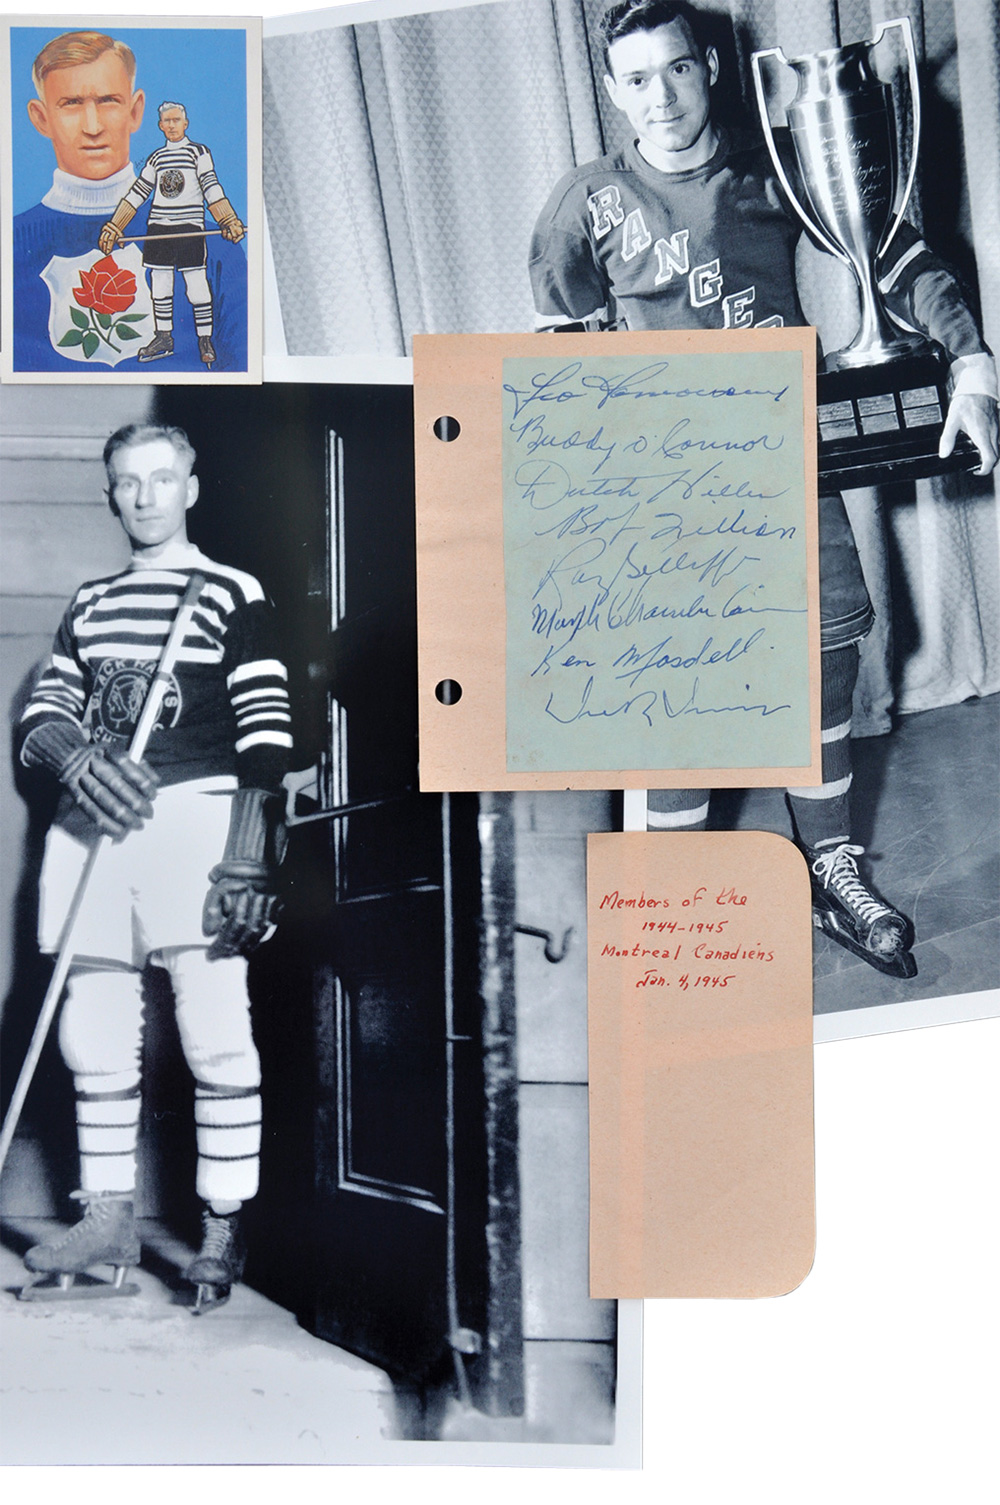 RANGER
Leo Lamoureux
Buddy O'Connor
Dutch Hiller
Bob Fillion
Ray Getliffe
Murph Chamberlain
Ken Mosdell.
Dick Irvin
BLACK HAWKS
CH
Members of the
1944-1945
Montreal Canadiens
Jan. 4, 1945